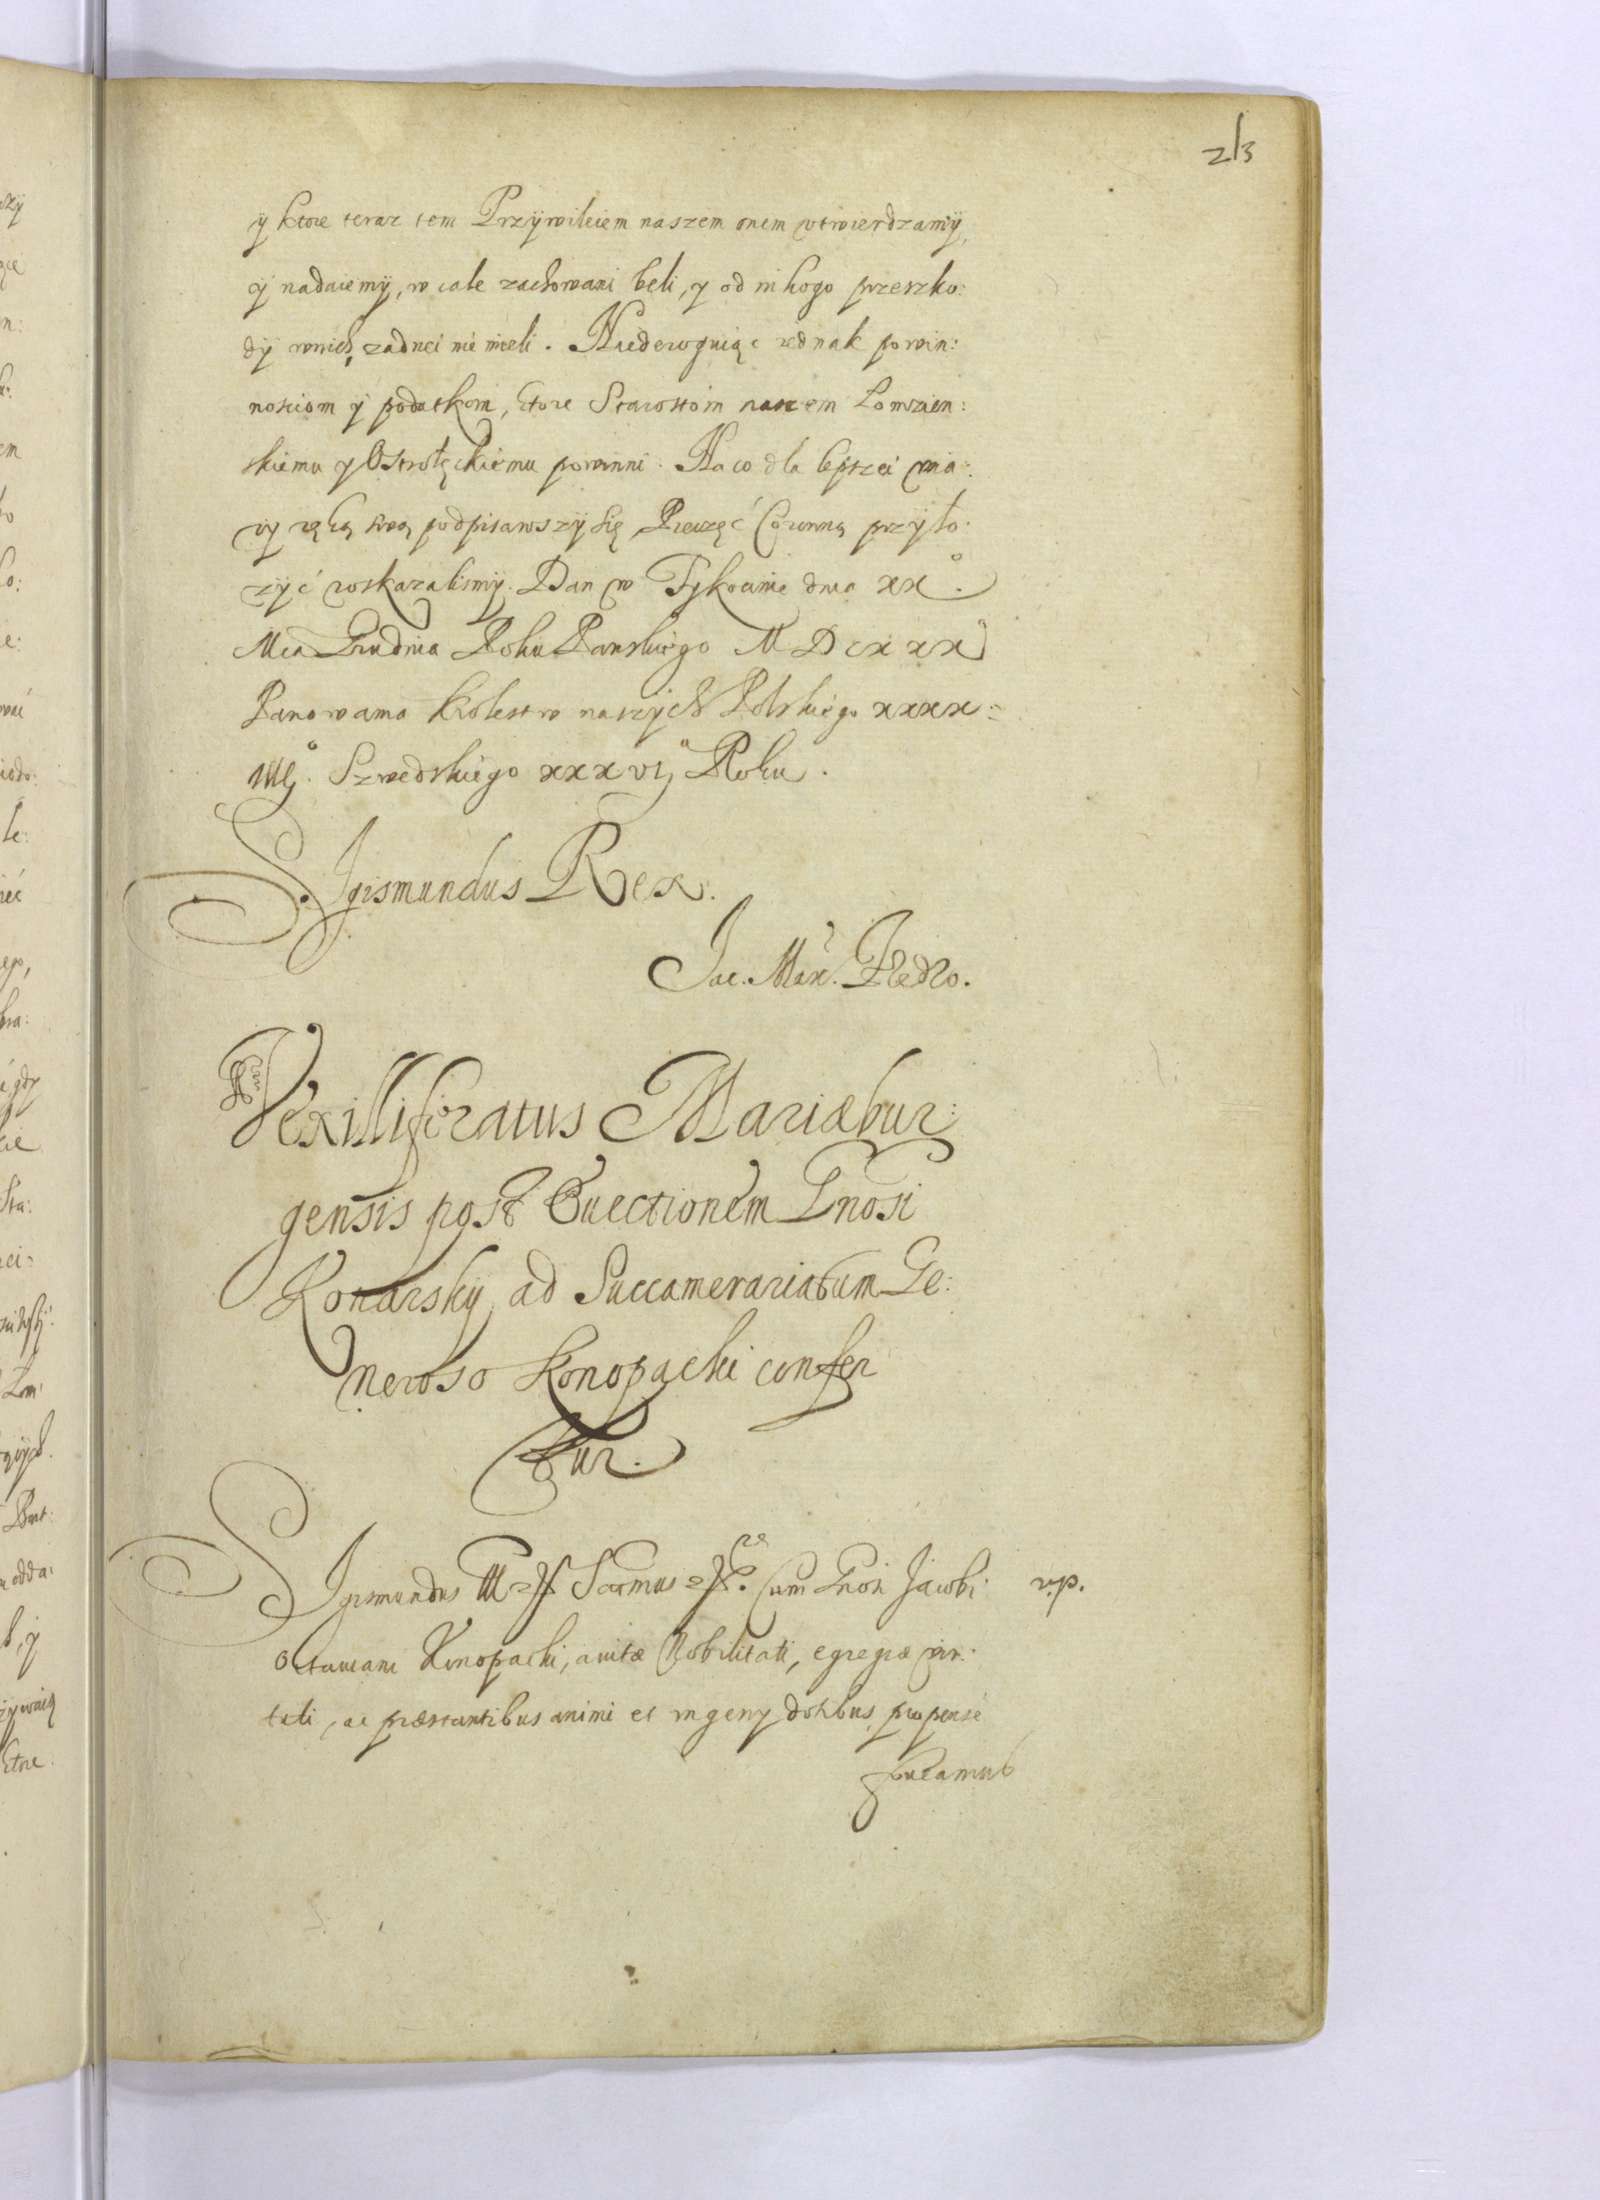 213
ÿ ktore teraz tem Przÿwileiem naszem onem vtwierdzamÿ,
ÿ nadaiemÿ, w cale zachowani beli, y od nikogo przeszko:
dÿ w nich zadnei nie mieli. Niederoguiąc iednak powin:
nosciom ÿ podatkom, ktore Starostom naszem Lomzien:
skiemu y Ostrołęckiemu powinni. Na co dla lepszei wia:
ry ręką swą podpisawszÿ się, Pieczęć Coronną przÿło:
zÿć roskazalismÿ. Dan w Tykocinie dnia xx°.
Mca Grudnia Roku Panskiego MDCXXX
Panowania Krolestw naszÿch Polskiego xxxx:
iiij° Szwedskiego xxxvij° Roku.
Sigismundus Rex.
Jac. Max. Fredro.
Vexilliferatus Mariæbur:
gensis post Euectionem Gnosi
Konarskÿ ad Succamerariatum Ge:
neroso Konopacki confer
tur.
Sigismundus III Cum Gnosi Jacobi v.p.
Octauiani Konopacki, auitæ Nobilitati, egregiæ vir:
tuti, ac præstantibus animi et ingenÿ dotibus propensé
faueamus